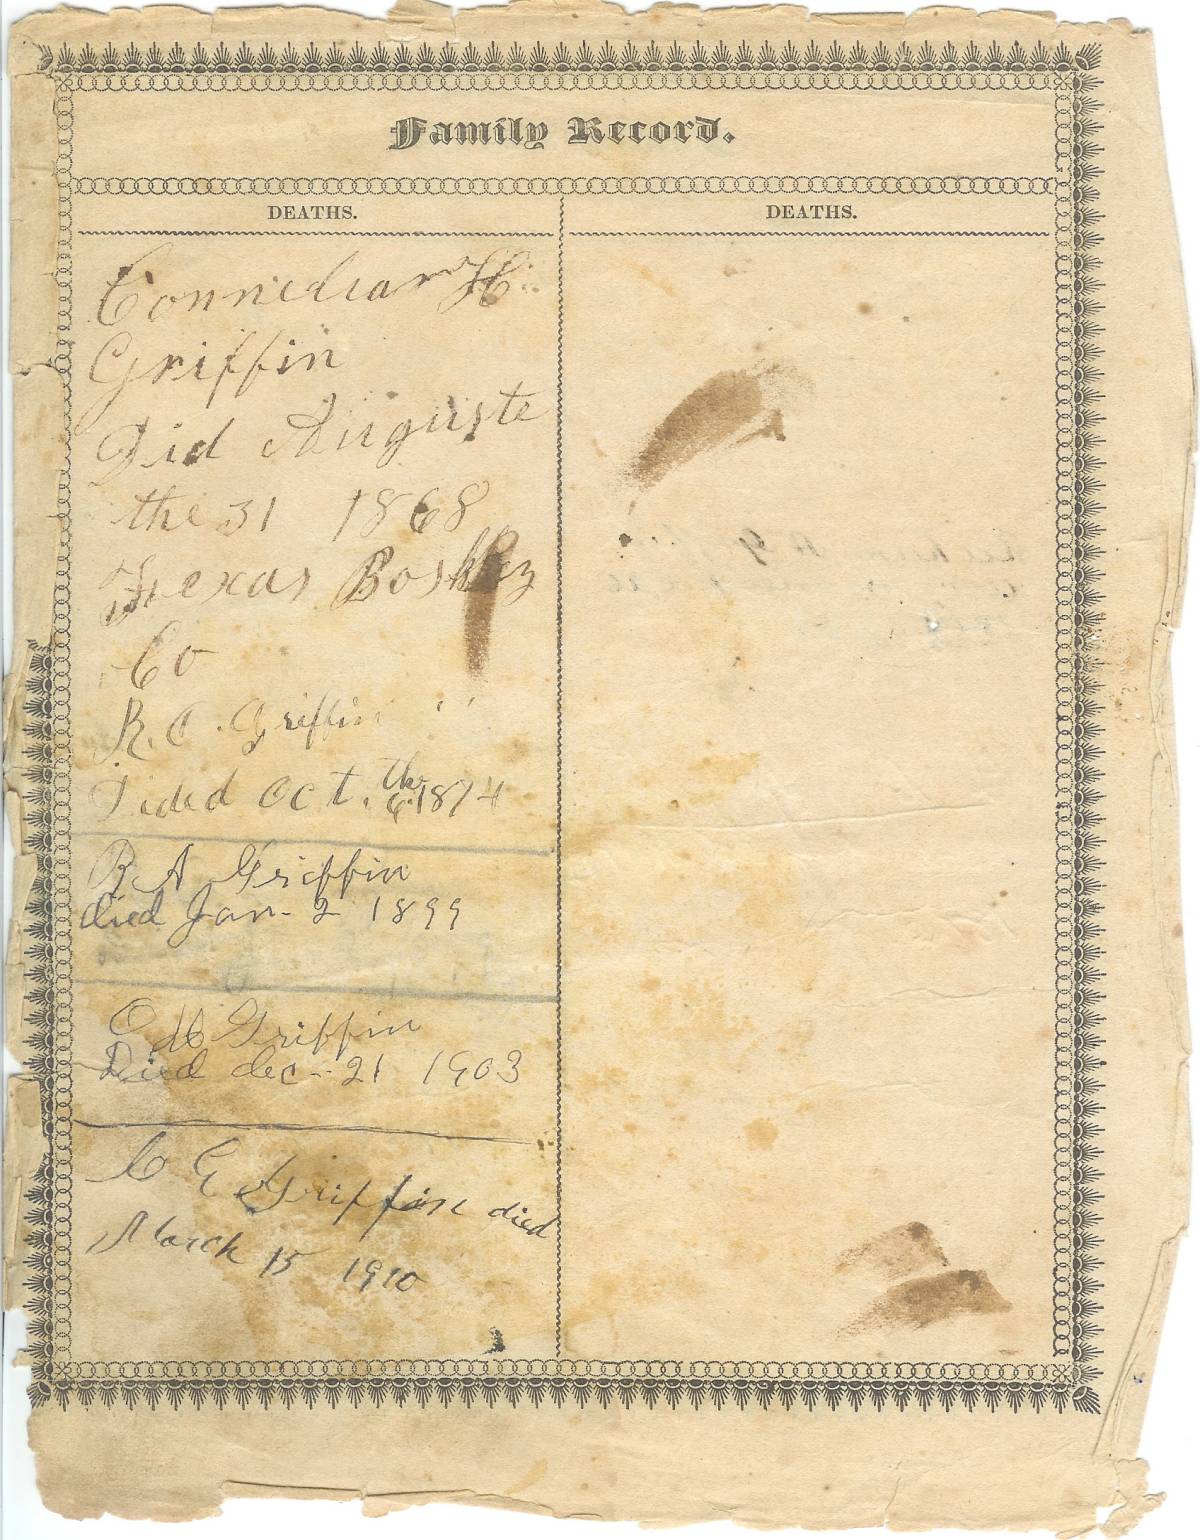 Family Record.
DEATHS.
Griffin
Did Auguste
the 31 1868
Texas
Co
R. C. Griffin
Dided Oct. 6th 1874
R A Griffin
died Jan- 2 1899
O H Griffin
Died dec- 21 1903
C E Griffin died
March 15 1910
DEATHS.